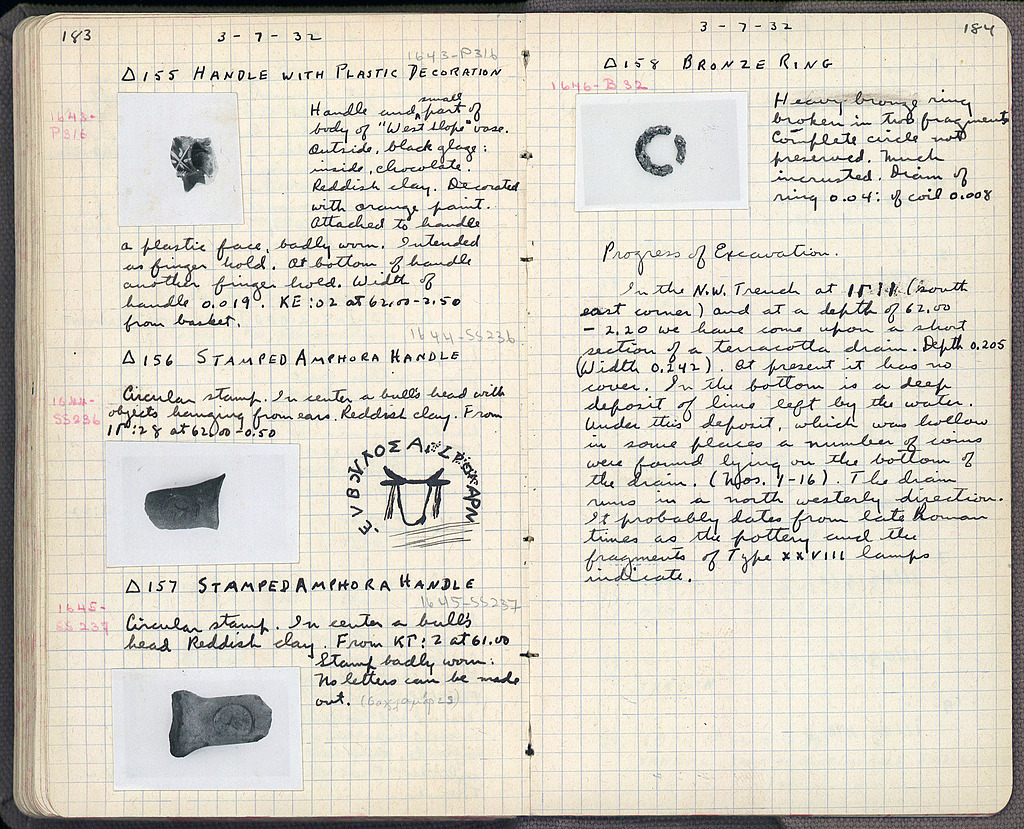 183
3-7-32
1643-P316
Δ155 HANDLE WITH PLASTIC DECORATION
1643-
P316
Handle and small part of
body of "West slope" vase.
Outside, black glaze:
inside, chocolate.
Reddish clay. Decorated
with orange paint.
Attached to handle
a plastic face, badly worn. Intended
as finger hold. At bottom of handle
another finger hold. Width of
handle 0.019. KE:02 at 62.00-2.50
from basket.
1644-SS236
Δ156 STAMPED AMPHORA HANDLE
1644-
SS236
Circular stamp. In center a bull's head with
objects hanging from ears. Reddish clay. From
:28 at 62.00-0.50
Δ157 STAMPED AMPHORA HANDLE
1645-SS237
1645-
SS237
Circular stamp. In center a bull's
head Reddish clay. From KΓ:2 at 61.00
Stamp badly worn:
No letters can be made
out.
3-7-32
184
Δ158 BRONZE RING
1646-B32
Heavy bronze ring
broken in two fragments
Complete circle not
preserved. Much
incrusted. Diam of
ring 0.04: of coil 0.008
Progress of Excavation.
In the N.W. Trench at (south
east corner) and at a depth of 62.00
-2.20 we have come upon a short
section of a terracotta drain. Depth 0.205
(Width 0.242). At present it has no
cover. In the bottom is a deep
deposit of lime left by the water.
Under this deposit, which was hollow
in some places a number of coins
were found lying on the bottom of
the drain. (Nos. 4-16). The drain
runs in a north westerly direction.
It probably dates from late Roman
times as the pottery and the
fragments of Type XXVIII lamps
indicate.